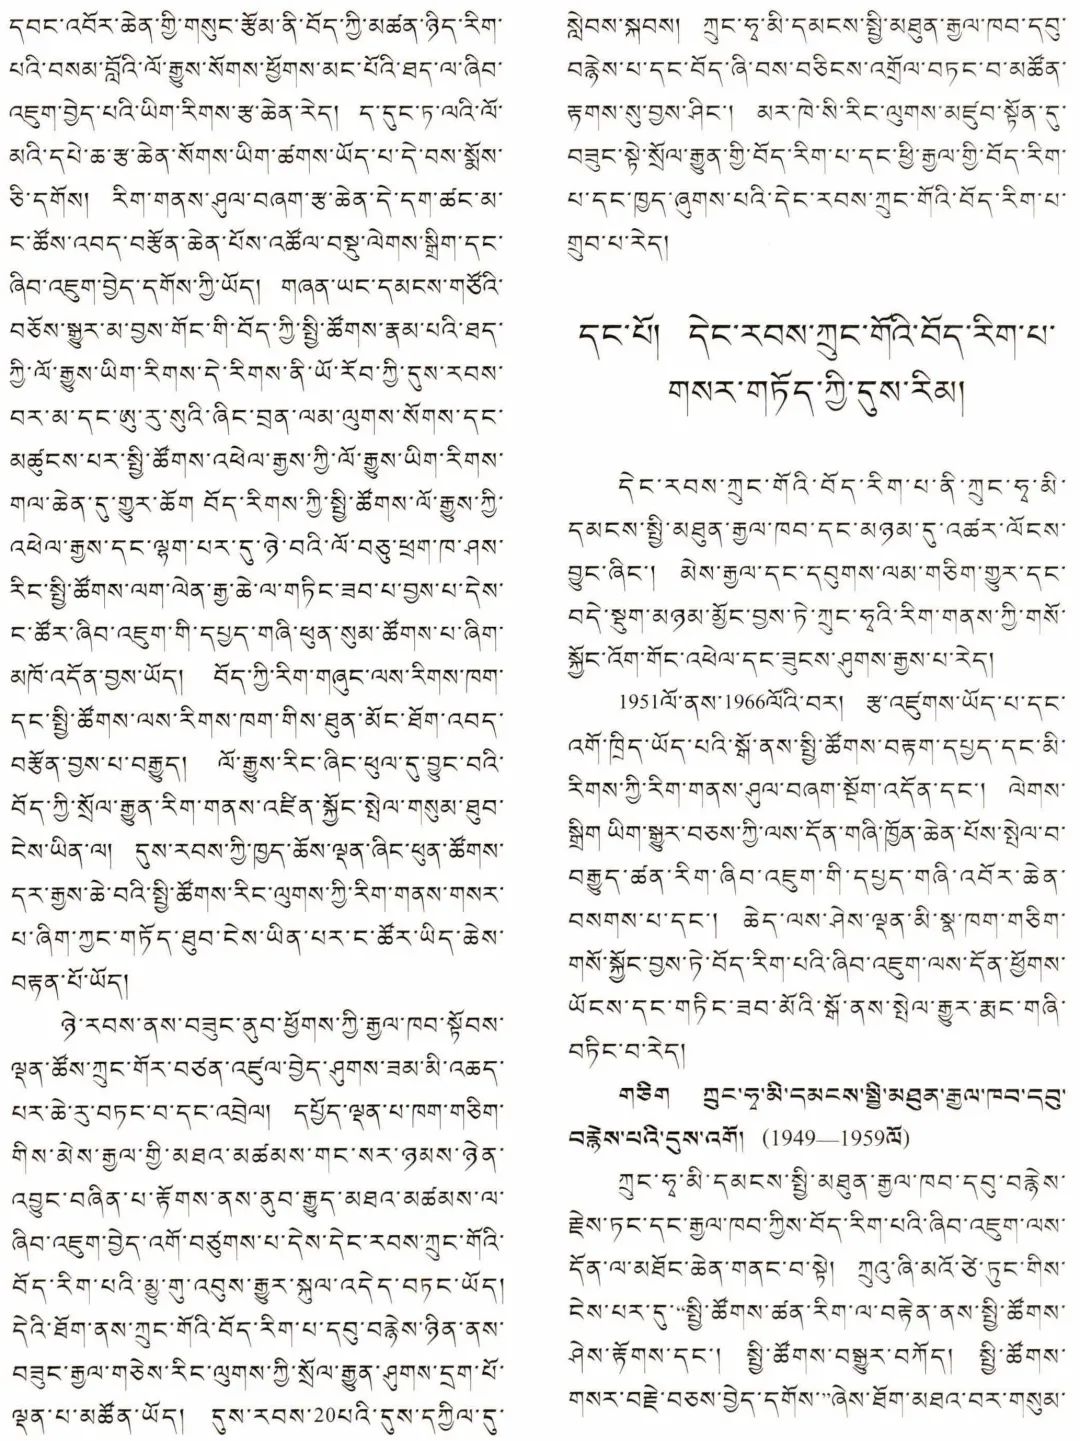 དབང་འབོར་ཆེན་གྱི་གསུང་རྩོམ་ནི་བོད་ཀྱི་མཚན་ཉིད་རིག་
པའི་བསམ་བློའི་ལོ་རྒྱུས་སོགས་ཕྱོགས་མང་པོའི་ཐད་ལ་ཞིབ་
འཇུག་བྱེད་པའི་ཡིག་རིགས་རྩ་ཆེན་རེད། ད་དུང་ཏ་ལའི་ལོ་
མའི་དཔེ་ཆ་རྩ་ཆེན་སོགས་ཡིག་ཚགས་ཡོད་པ་དེ་བས་སྨོས་
ཅི་དགོས། རིག་གནས་ཤུལ་བཞག་རྩ་ཆེན་དེ་དག་ཚང་མ་
ང་ཚོས་འབད་བརྩོན་ཆེན་པོས་འཚོལ་བསྡུ་ལེགས་སྒྲིག་དང་
ཞིབ་འཇུག་བྱེད་དགོས་ཀྱི་ཡོད། གཞན་ཡང་དམངས་གཙོའི་
བཅོས་སྒྱུར་མ་བྱས་གོང་གི་བོད་ཀྱི་སྤྱི་ཚོགས་རྣམ་པའི་ཐད་
ཀྱི་ལོ་རྒྱུས་ཡིག་རིགས་དེ་རིགས་ནི་ཡོ་རོབ་ཀྱི་དུས་རབས་
བར་མ་དང་ཨུ་རུ་སུའི་ཞིང་བྲན་ལམ་ལུགས་སོགས་དང་
མཚུངས་པར་སྤྱི་ཚོགས་འཕེལ་རྒྱས་ཀྱི་ལོ་རྒྱུས་ཡིག་རིགས་
གལ་ཆེན་དུ་གྱུར་ཆོག བོད་རིགས་ཀྱི་སྤྱི་ཚོགས་ལོ་རྒྱུས་ཀྱི་
འཕེལ་རྒྱས་དང་ལྷག་པར་དུ་ཉེ་བའི་ལོ་བཅུ་ཕྲག་ཁ་ཤས་
རིང་སྤྱི་ཚོགས་ལག་ལེན་རྒྱ་ཆེ་ལ་གཏིང་ཟབ་པ་བྱས་པ་དེས་
ང་ཚོར་ཞིབ་འཇུག་གི་དཔྱད་གཞི་ཕུན་སུམ་ཚོགས་པ་ཞིག་
མཁོ་འདོན་བྱས་ཡོད། བོད་ཀྱི་རིག་གཞུང་ལས་རིགས་ཁག་
དང་སྤྱི་ཚོགས་ལས་རིགས་ཁག་གིས་ཐུན་མོང་ཐོག་འབད་
བརྩོན་བྱས་པ་བརྒྱུད། ལོ་རྒྱུས་རིང་ཞིང་ཕུལ་དུ་བྱུང་བའི་
བོད་ཀྱི་སྲོལ་རྒྱུན་རིག་གནས་འཛིན་སྐྱོང་སྤེལ་གསུམ་ཐུབ་
ངེས་ཡིན་ལ། དུས་རབས་ཀྱི་ཁྱད་ཆོས་ལྡན་ཞིང་ཕུན་ཚོགས་
དར་རྒྱས་ཆེ་བའི་སྤྱི་ཚོགས་རིང་ལུགས་ཀྱི་རིག་གནས་གསར་
པ་ཞིག་ཀྱང་གཏོད་ཐུབ་ངེས་ཡིན་པར་ང་ཚོར་ཡིད་ཆེས་
བརྟན་པོ་ཡོད།
ཉེ་རབས་ནས་བཟུང་ནུབ་ཕྱོགས་ཀྱི་རྒྱལ་ཁབ་སྟོབས་
ལྡན་ཚོས་ཀྲུང་གོར་བཙན་འཛུལ་བྱེད་ཤུགས་ཟམ་མི་འཆད་
པར་ཆེ་རུ་བཏང་བ་དང་འབྲེལ། དཔྱོད་ལྡན་པ་ཁག་གཅིག་
གིས་མེས་རྒྱལ་གྱི་མཐའ་མཚམས་གང་སར་ཉམས་ཉེན་
འབྱུང་བཞིན་པ་རྟོགས་ནས་ནུབ་རྒྱུད་མཐའ་མཚམས་ལ་
ཞིབ་འཇུག་བྱེད་འགོ་བཙུགས་པ་དེས་དེང་རབས་ཀྲུང་གོའི་
བོད་རིག་པའི་མྱུ་གུ་འབུས་རྒྱུར་སྐུལ་འདེད་བཏང་ཡོད།
དེའི་ཐོག་ནས་ཀྲུང་གོའི་བོད་རིག་པ་དབུ་བརྙེས་ཉིན་ནས་
བཟུང་རྒྱལ་གཅེས་རིང་ལུགས་ཀྱི་སྲོལ་རྒྱུན་ཤུགས་དྲག་པོ་
ལྡན་པ་མཚོན་ཡོད། དུས་རབས་20པའི་དུས་དཀྱིལ་དུ་
སླེབས་སྐབས། ཀྲུང་ཧྭ་མི་དམངས་སྤྱི་མཐུན་རྒྱལ་ཁབ་དབུ་
བརྙེས་པ་དང་བོད་ཞི་བས་བཅིངས་འགྲོལ་བཏང་བ་མཚོན་
རྟགས་སུ་བྱས་ཤིང་། མར་ཁེ་སི་རིང་ལུགས་མཛུབ་སྟོན་དུ་
བཟུང་སྟེ་སྲོལ་རྒྱུན་གྱི་བོད་རིག་པ་དང་ཕྱི་རྒྱལ་གྱི་བོད་རིག་
པ་དང་ཁྱད་ཞུགས་པའི་དེང་རབས་ཀྲུང་གོའི་བོད་རིག་པ་
གྲུབ་པ་རེད།
དང་པོ། དེང་རབས་ཀྲུང་གོའི་བོད་རིག་པ་
གསར་གཏོད་ཀྱི་དུས་རིམ།
དེང་རབས་ཀྲུང་གོའི་བོད་རིག་པ་ནི་ཀྲུང་ཧྭ་མི་
དམངས་སྤྱི་མཐུན་རྒྱལ་ཁབ་དང་མཉམ་དུ་འཚར་ལོངས་
བྱུང་ཞིང་། མེས་རྒྱལ་དང་དབུགས་ལམ་གཅིག་གྱུར་དང་
བདེ་སྡུག་མཉམ་མྱོང་བྱས་ཏེ་ཀྲུང་ཧྭའི་རིག་གནས་ཀྱི་གསོ་
སྐྱོང་འོག་གོང་འཕེལ་དང་ཟུངས་ཤུགས་རྒྱས་པ་རེད།
1951ལོ་ནས་1966ལོའི་བར། རྩ་འཛུགས་ཡོད་པ་དང་
འགོ་ཁྲིད་ཡོད་པའི་སྒོ་ནས་སྤྱི་ཚོགས་བརྟག་དཔྱད་དང་མི་
རིགས་ཀྱི་རིག་གནས་ཤུལ་བཞག་སྔོག་འདོན་དང་། ལེགས་
སྒྲིག་ཡིག་སྒྱུར་བཅས་ཀྱི་ལས་དོན་གཞི་ཁྱོན་ཆེན་པོས་སྤེལ་བ་
བརྒྱུད་ཚན་རིག་ཞིབ་འཇུག་གི་དཔྱད་གཞི་འབོར་ཆེན་
བསགས་པ་དང་། ཆེད་ལས་ཤེས་ལྡན་མི་སྣ་ཁག་གཅིག་
གསོ་སྐྱོང་བྱས་ཏེ་བོད་རིག་པའི་ཞིབ་འཇུག་ལས་དོན་ཕྱོགས་
ཡོངས་དང་གཏིང་ཟབ་མོའི་སྒོ་ནས་སྤེལ་རྒྱུར་རྨང་གཞི་
བཏིང་བ་རེད།
གཅིག ཀྲུང་ཧྭ་མི་དམངས་སྤྱི་མཐུན་རྒྱལ་ཁབ་དབུ་
བརྙེས་པའི་དུས་འགོ། (1949—1959ལོ)
ཀྲུང་ཧྭ་མི་དམངས་སྤྱི་མཐུན་རྒྱལ་ཁབ་དབུ་བརྙེས་
རྗེས་ཏང་དང་རྒྱལ་ཁབ་ཀྱིས་བོད་རིག་པའི་ཞིབ་འཇུག་ལས་
དོན་ལ་མཐོང་ཆེན་གནང་བ་སྟེ། ཀྲུའུ་ཞི་མའོ་ཙེ་ཏུང་གིས་
ངེས་པར་དུ་“སྤྱི་ཚོགས་ཚན་རིག་ལ་བརྟེན་ནས་སྤྱི་ཚོགས་
ཤེས་རྟོགས་དང་། སྤྱི་ཚོགས་བསྒྱུར་བཀོད། སྤྱི་ཚོགས་
གསར་བརྗེ་བཅས་བྱེད་དགོས་”ཞེས་ཐོག་མཐའ་བར་གསུམ་